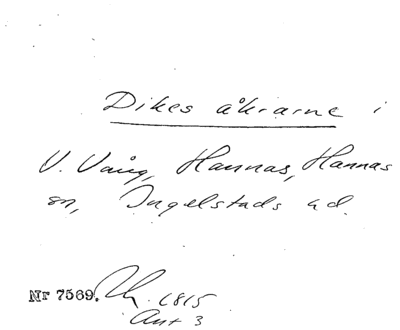 Dikes åkrarne i
V. Vång, Hannas, Hannas
sn, Ingelstads hd.
Nr 7569. 1815
Akt 3